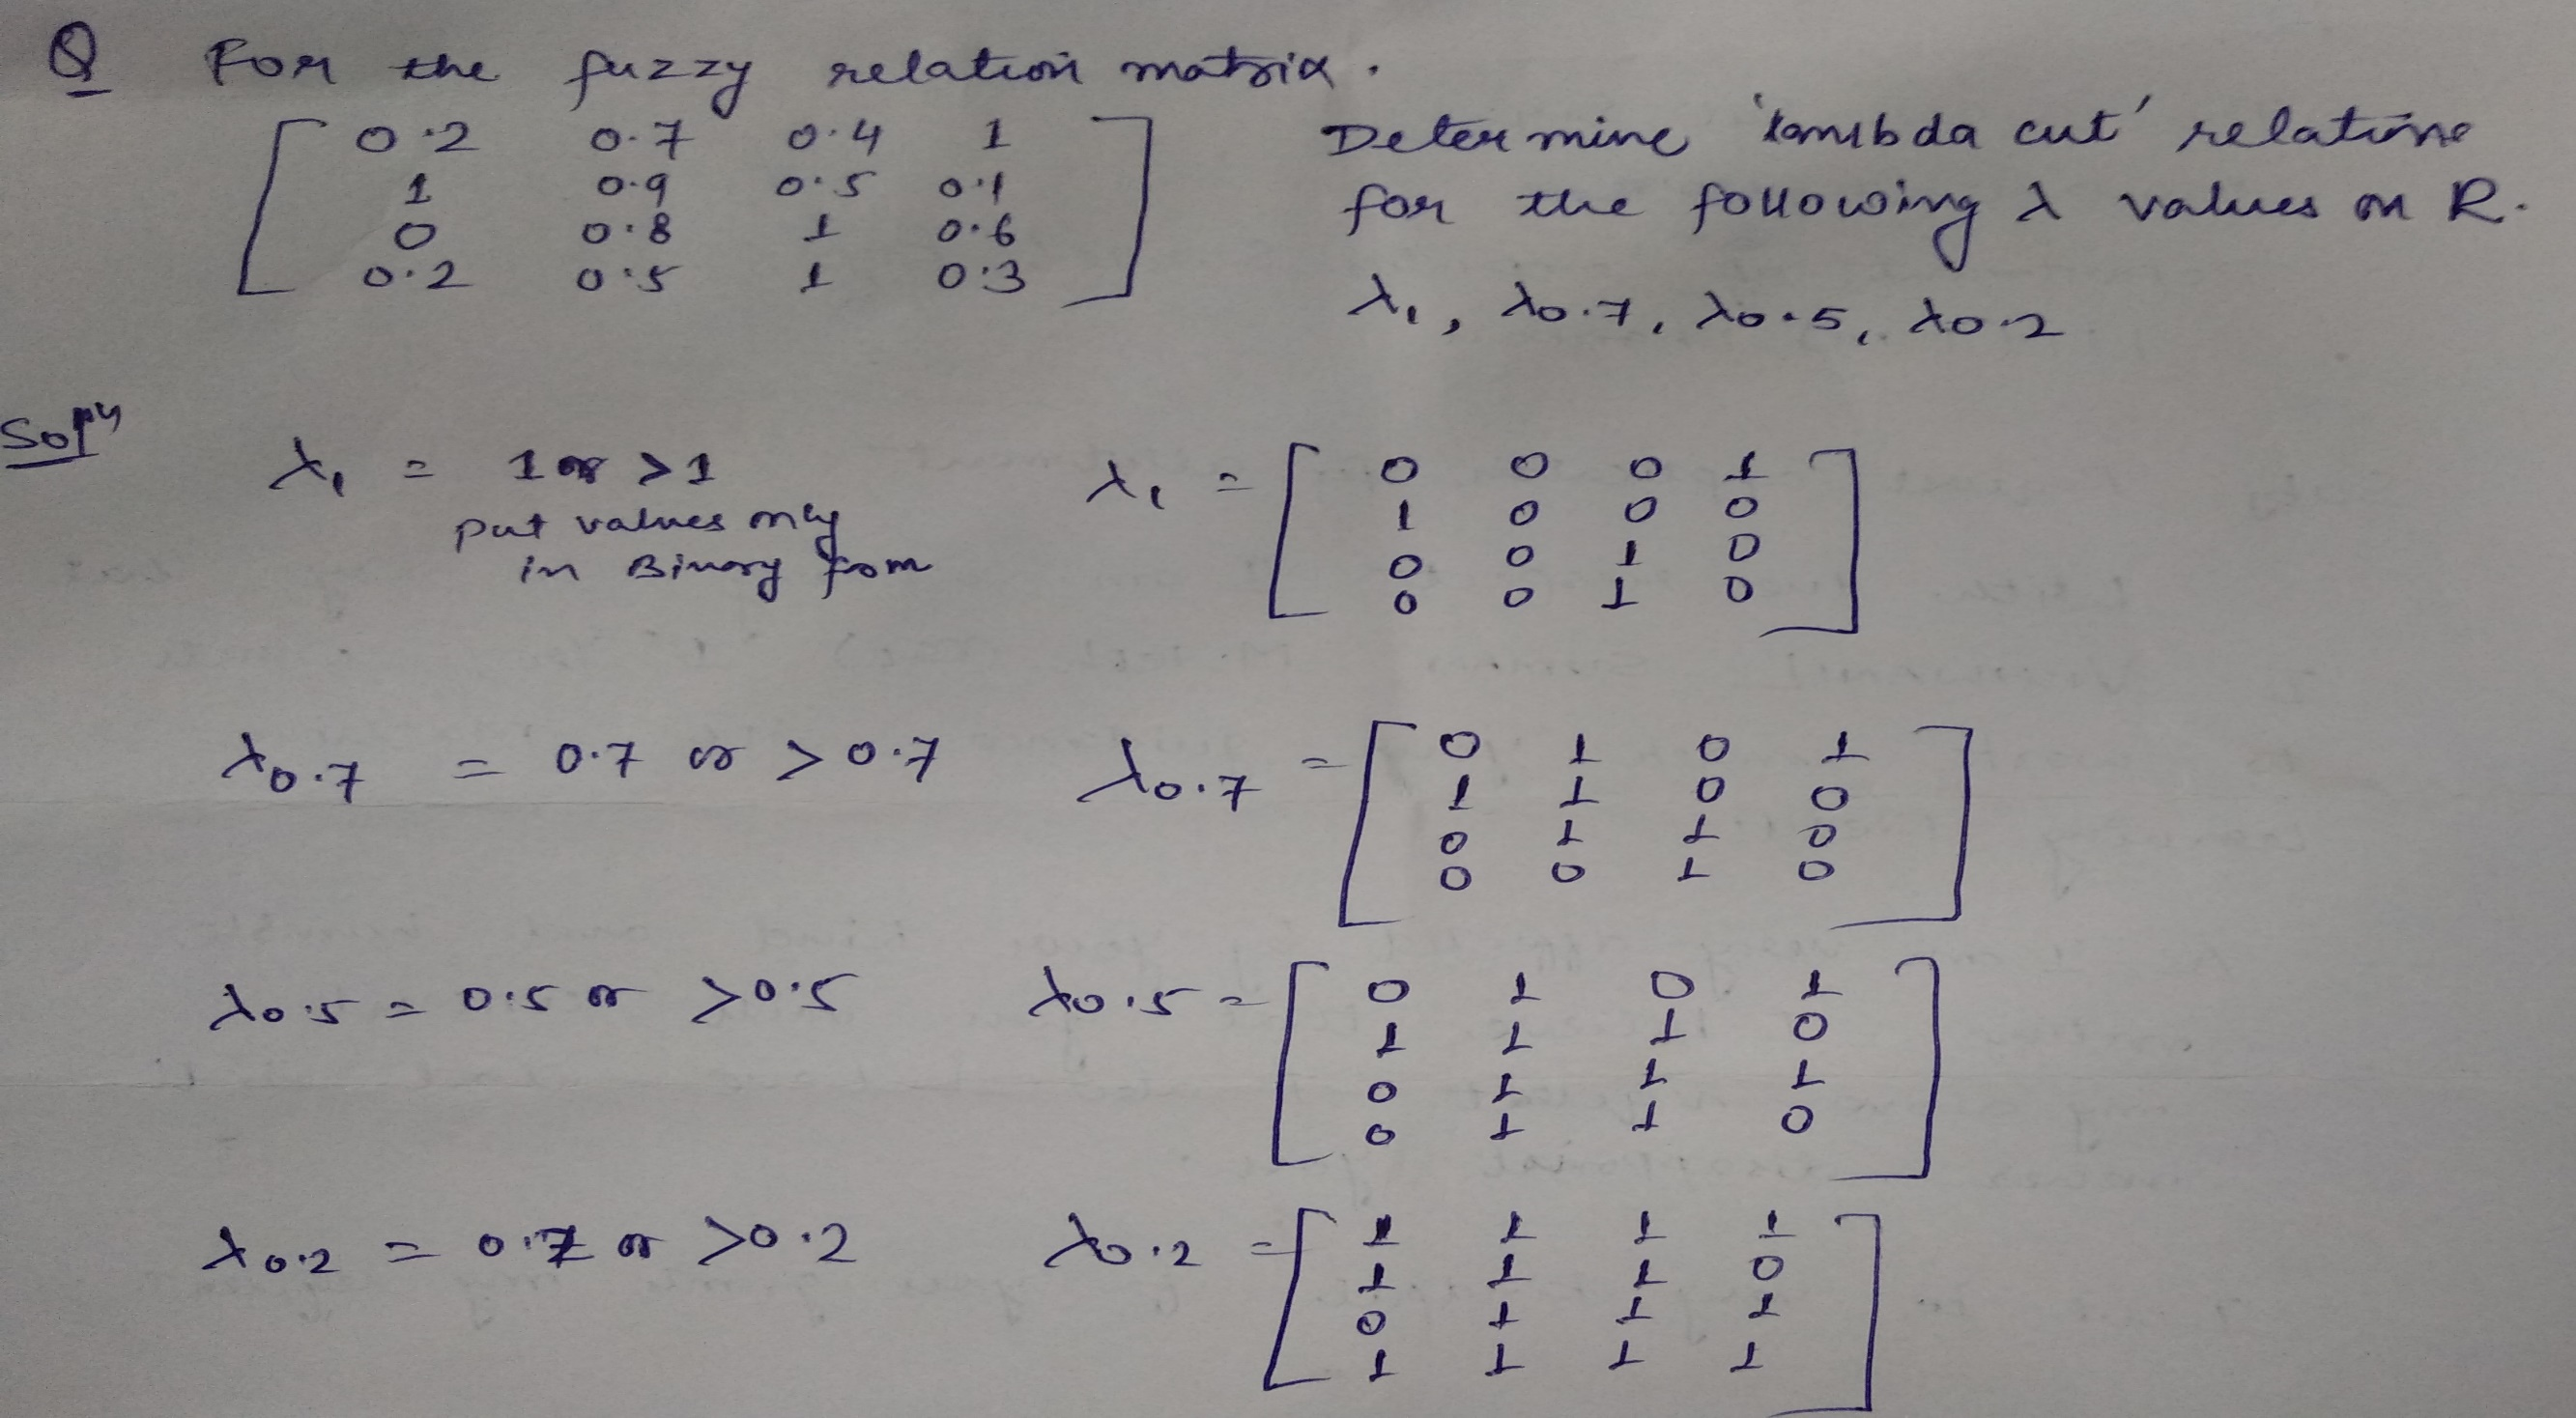 Q For the fuzzy relation matrix.
0.2 0.7 0.4 1
1 0.9 0.5 0.1
0 0.8 1 0.6
0.2 0.5 1 0.3
Determine 'lambda cut' relations
for the following λ values on R.
λ1, λ0.7, λ0.5, λ0.2
Solⁿ
λ1 = 1 or >1
put values only
in Binary from
λ1 =
0 0 0 1
1 0 0 0
0 0 1 0
0 0 1 0
λ0.7 = 0.7 or > 0.7
λ0.7 =
0 1 0 1
1 1 0 0
0 1 1 0
0 0 1 0
λ0.5 = 0.5 or >0.5
λ0.5 =
0 1 0 1
1 1 1 0
0 1 1 1
0 1 1 0
λ0.2 = 0.2 or >0.2
λ0.2 =
1 1 1 1
1 1 1 0
0 1 1 1
1 1 1 1